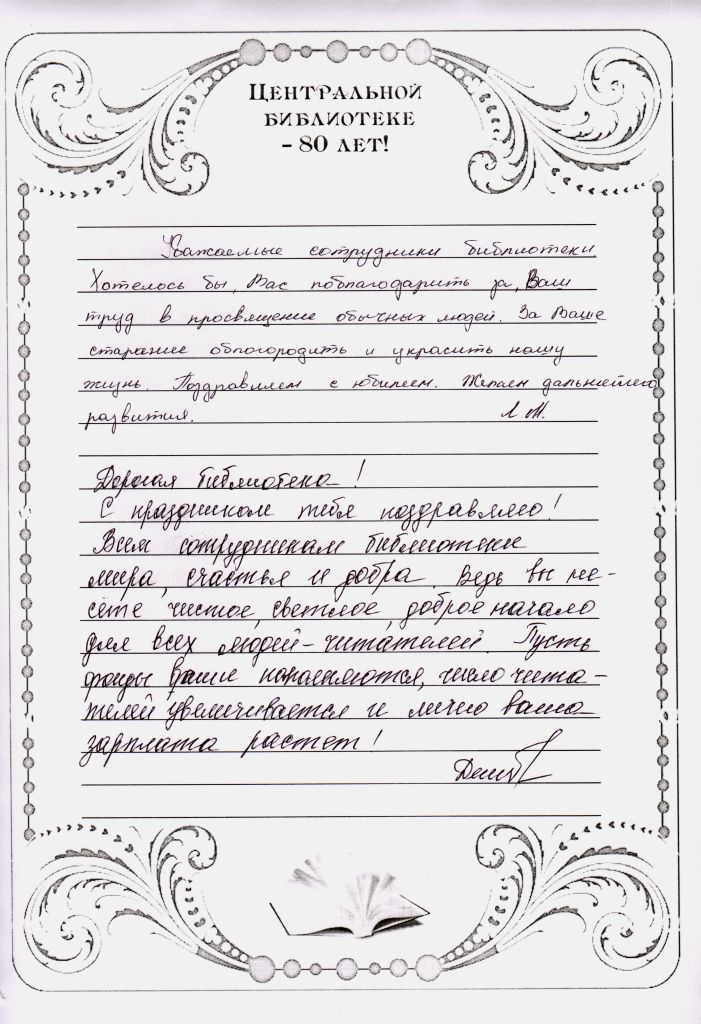 ЦЕНТРАЛЬНОЙ
БИБЛИОТЕКЕ
- 80 ЛЕТ!
Уважаемые сотрудники библиотеки
Хотелось бы, Вас поблагодарить за, Ваш
труд в просвящение обычных людей. За Ваше
старание облогородить и украсить нашу
жизнь. Поздравляем с юбилеем. Желаем дальнейшего
развития. Л.М.
Дорогая библиотека!
С праздником тебя поздравляю!
Всем сотрудникам библиотеки
мира, счастья и добра. Ведь вы не-
сете чистое, светлое, доброе начало
для всех людей-читателей. Пусть
фонды ваши пополняются, число чита-
телей увеличивается и лично ваша
зарплата растет!